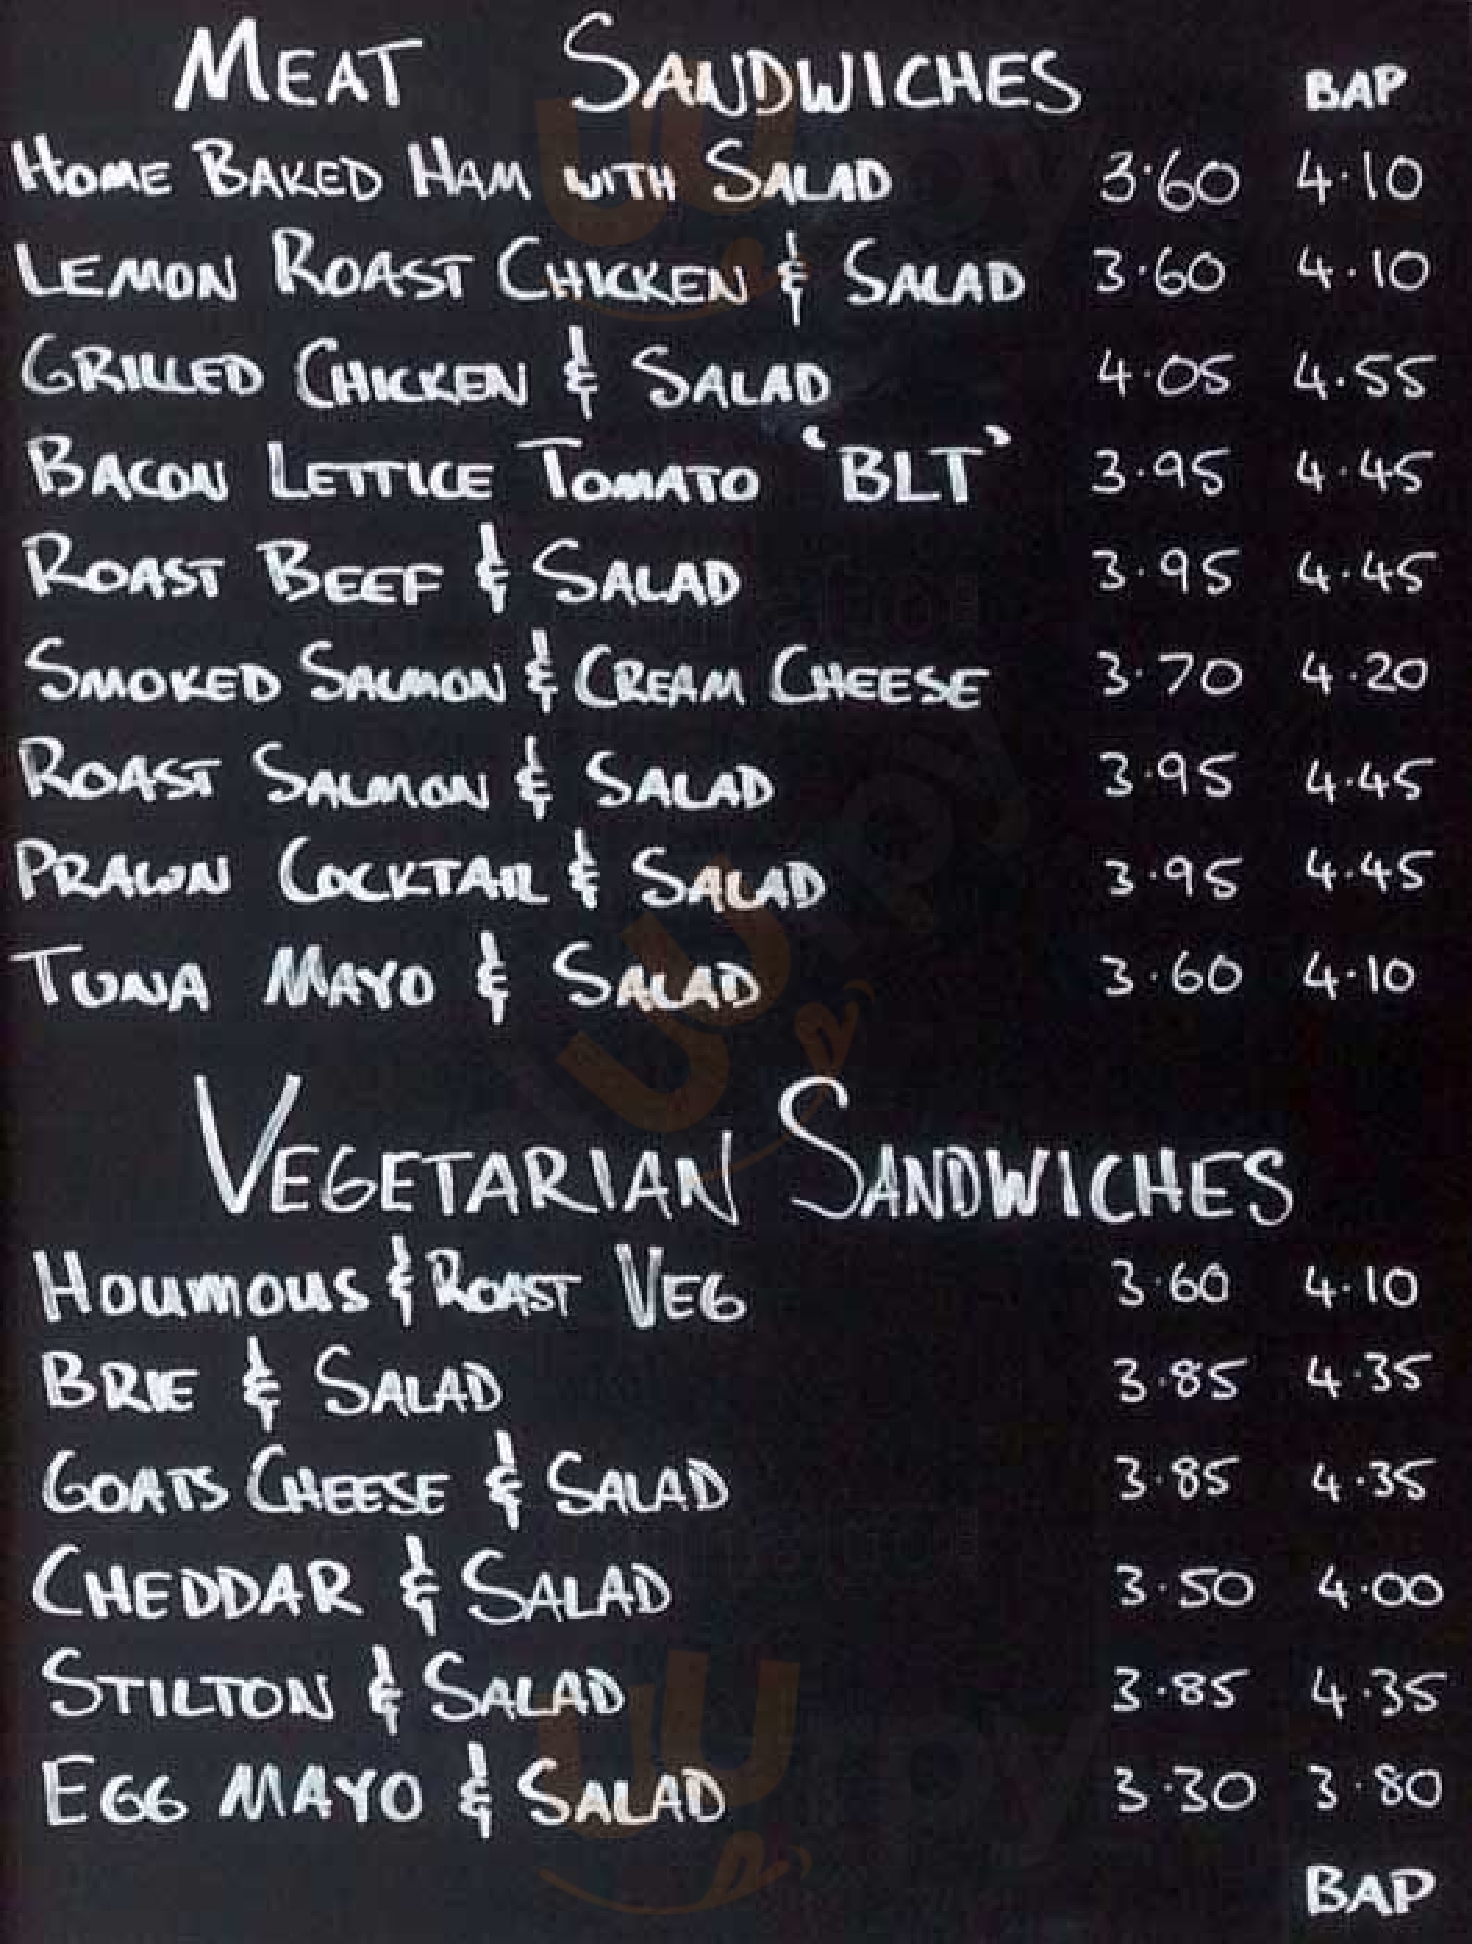 MEAT SANDWICHES BAP
HOME BAKED HAM WITH SALAD 3·60 4·10
LEMON ROAST CHICKEN & SALAD 3·60 4·10
GRILLED CHICKEN & SALAD 4·05 4·55
BACON LETTICE TOMATO 'BLT' 3·95 4·45
ROAST BEEF & SALAD 3·95 4·45
SMOKED SALMON & CREAM CHEESE 3·70 4·20
ROAST SALMON & SALAD 3·95 4·45
PRAWN COCKTAIL & SALAD 3·95 4·45
TUNA MAYO & SALAD 3·60 4·10
VEGETARIAN SANDWICHES
HOUMOUS & ROAST VEG 3·60 4·10
BRIE & SALAD 3·85 4·35
GOATS CHEESE & SALAD 3·85 4·35
CHEDDAR & SALAD 3·50 4·00
STILTON & SALAD 3·85 4·35
EGG MAYO & SALAD 3·30 3·80
BAP